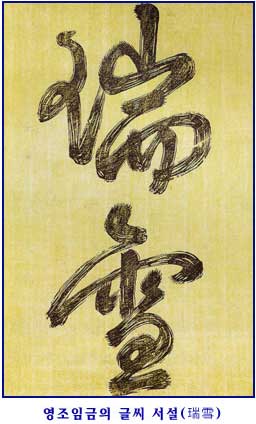 瑞
雪
영조임금의 글씨 서설(瑞雪)